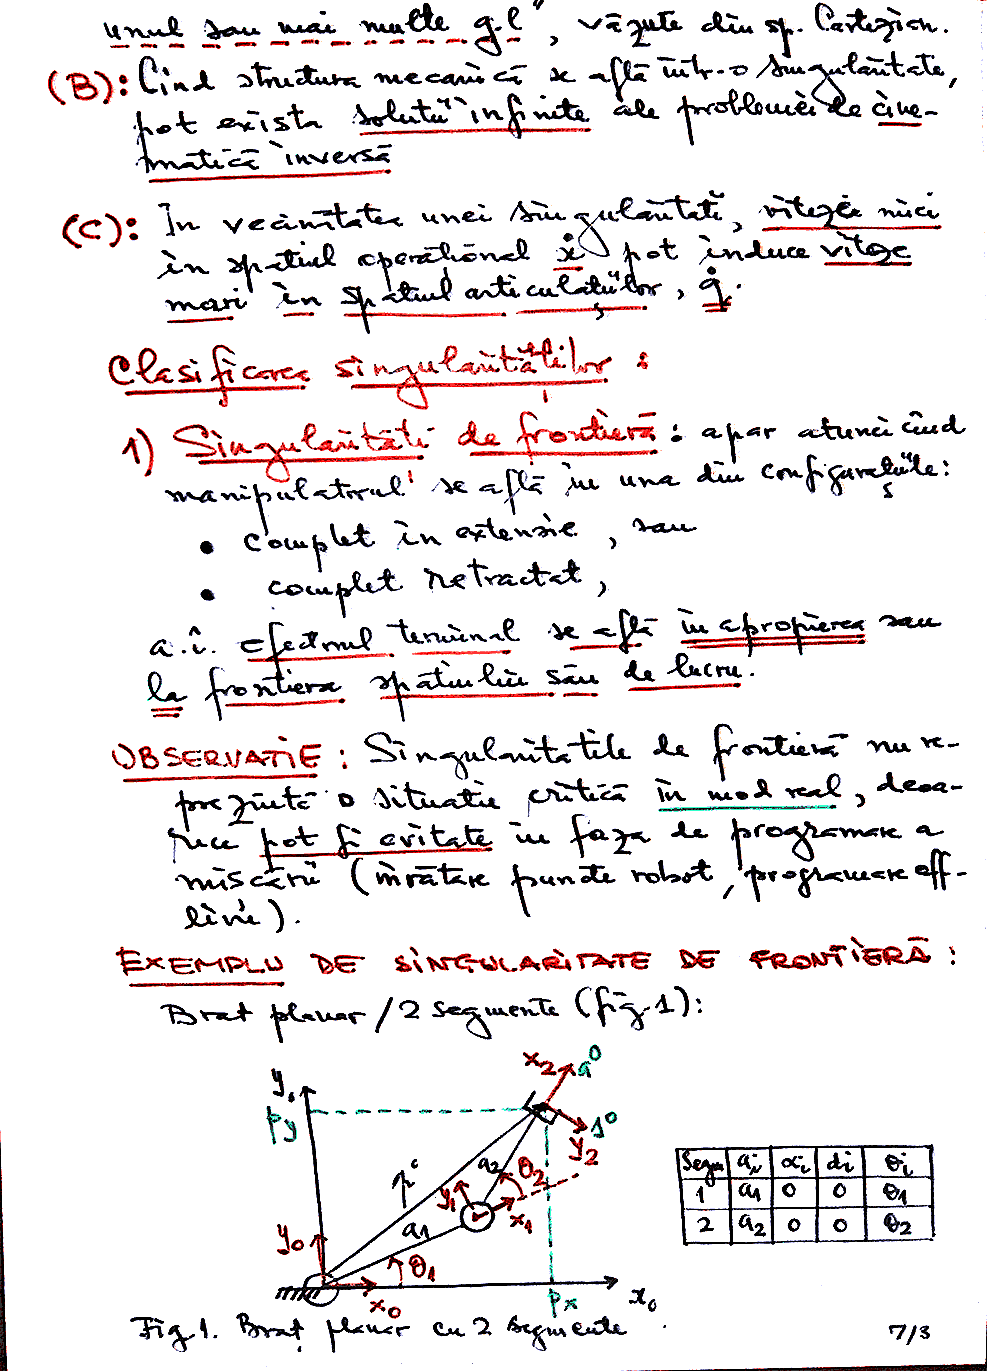 unul sau mai multe g.l", văzute din sp. Cartezian.
(B): Cînd structura mecanică se află într-o singularitate,
pot exista soluții infinite ale problemei de cine-
matică inversă
(C): În vecinătatea unei singularități, viteze mici
în spațiul operațional ẋ pot induce viteze
mari în spațiul articulațiilor, q̇.
Clasificarea singularităților :
1) Singularități de frontieră : apar atunci cînd
manipulatorul se află în una din configurațiile:
• complet în extensie, sau
• complet retractat,
a.î. efectorul terminal se află în apropierea sau
la frontiera spațiului său de lucru.
OBSERVAȚIE : Singularitățile de frontieră nu re-
prezintă o situație critică în mod real, deoa-
rece pot fi evitate în faza de programare a
mișcării (învățare puncte robot, programare off-
line).
EXEMPLU DE SINGULARITATE DE FRONTIERĂ :
Braț planar /2 segmente (fig.1):
x2 a0
y0
py
s0
y2
a2 θ2
p0
y1
x1
a1
y0
θ1
x0
px
x0
Segm ai αi di θi
1 a1 0 0 θ1
2 a2 0 0 θ2
Fig.1. Braț planar cu 2 segmente.
7/3